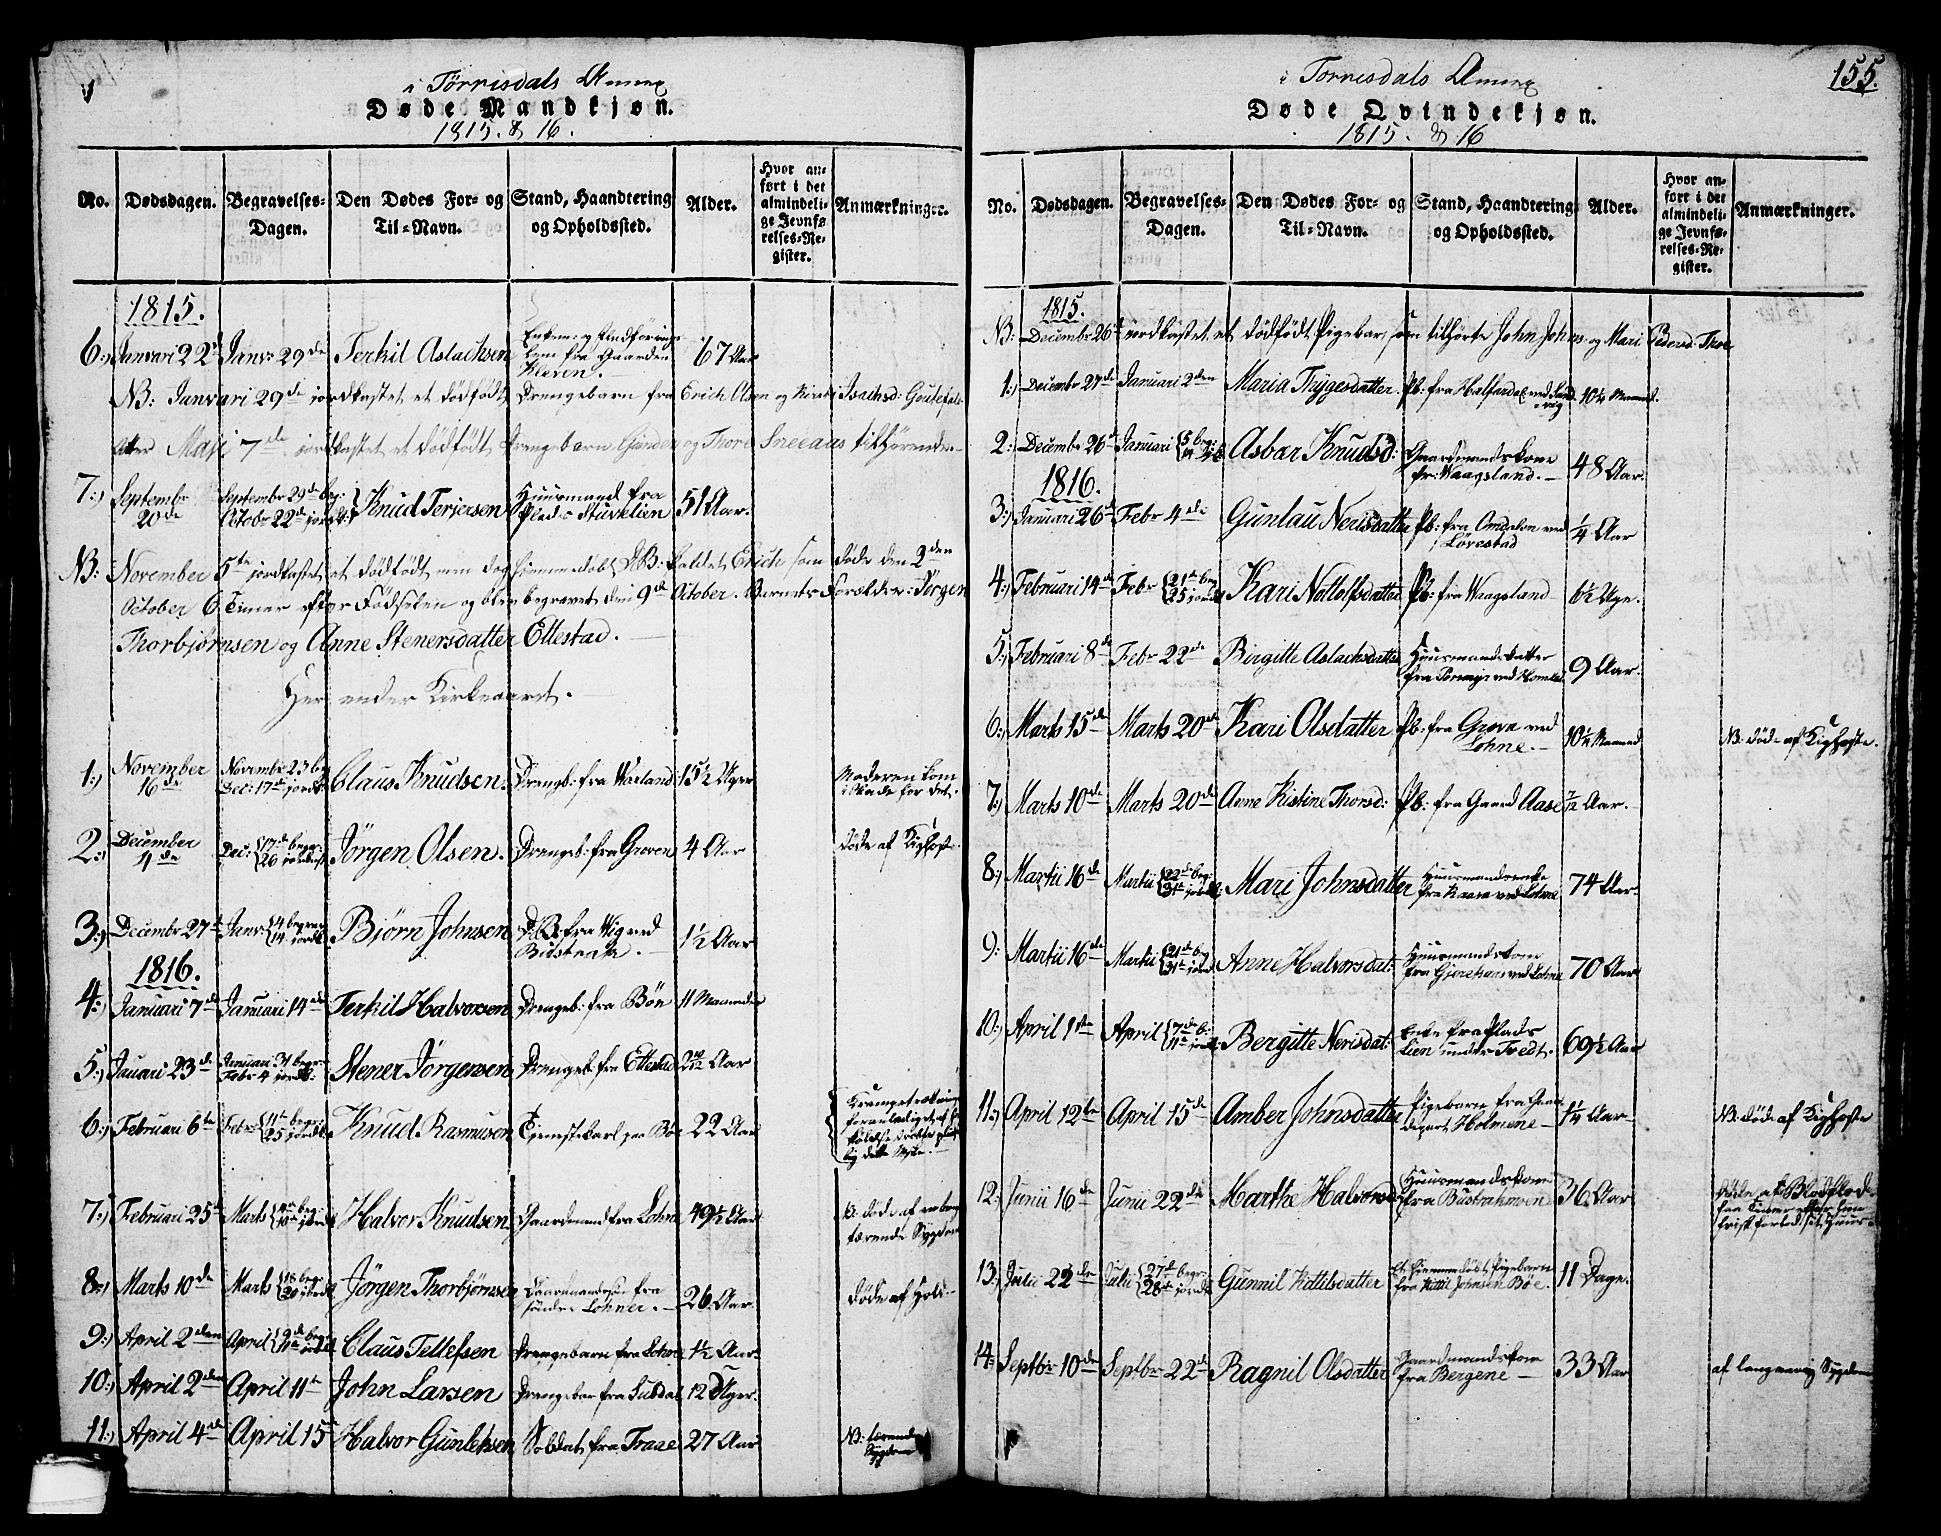 i Tørrisdals Annex
Døde Mandkjøn.
1815. & 16.
No.
Dødsdagen.
Begravelses-Dagen.
Den Dødes For- og Til-Navn.
Stand, Haandtering og Opholdssted.
Alder.
Hvor anført i det almindelige Jevnførelses-Register.
Anmærkninger.
1815.
6:) Januari 22 Janv: 29de Terkil Aslachsen fra Gaarden Kleven. 67 Aar
NB: Januari 29de jordkastet et dødfødt Drengebarn fra Erich Olsen og Kirsti Isachsd:
Maji 7de jordkastet et dødfødt Drengebarn Gunder og Thore Sneeaas tilhørende
7:) Septembr 20de Septembr 29de beg: Octobr 22de jordk: Knud Terjersen Huusmand fra Plads Stuvelien 51 Aar.
NB: November 5te jordkastet et dødfødt men døbt kaldet Erich som døde den 2den
October 6 Timer efter Fødselen og blev begravet den 9de October. Barnets Forældre: Jørgen
Thorbjørnsen og Anne Stenersdatter Ettestad.
Her ender Kirkeaaret.
1:) November 16de Novembr 23 beg: Dec: 17de jordk: Claus Knudsen. Drengb: fra Værland 15½ Uger Moderen kom i Skade for det.
2:) December 11de Dec: 17de begr: 26 jordkast Jørgen Olsen. Drengeb: fra Groven 4 Aar døde af Kighoste.
3:) Decembr 27de Janv: 4 begrav: 14 jordk: Bjørn Johnsen D:B: fra Wig ved 1½ Aar
1816.
4:) Januari 7de Januari 14de Terkil Halvorsen Drengeb: fra Bøn 11 Maaneder
5:) Januari 23de Januari 31 begr: Febr 4 jordk: Stener Jørgensen Drengeb: fra Ettestad Aar
6:) Februari 6te Febr: 11te begr: 25 jordk: Knud Rasmusen Tjenstkarl paa Bøe 22 Aar
7:) Februari 25de Marts 10de jordk Halvor Knudsen Gaardmand fra Lohne 49½ Aar NB: døde af en tærende Sygdom
8:) Marts 10de Marts 18 begr: 20 jordk Jørgen Thorbjørnsen Gaardmandssøn fra søndre Lohner. 26 Aar døde af Hold
9:) April 2den April 9de beg: jordk Claus Tellefsen Drengebarn fra Lohne 1½ Aar.
10:) April 2den April 11te John Larsen Drengebar fra 12 Uger.
11:) April 4de April 15 Halvor Gunleksen Soldat fra Traae 27 Aar NB: tærende Sygdom
i Torrisdals Annex
155.
Døde Qvindekjøn.
1815. & 16
No.
Dødsdagen.
Begravelses-Dagen.
Den Dødes For- og Til-Navn.
Stand, Haandtering og Opholdssted.
Alder.
Hvor anført i det almindelige Jevnførelses-Register.
Anmærkninger.
1815.
NB: Decembr 26de jordkastet et dødfødt Pigebar, som tilhørte John Johns: og Mari Pedersd: Thoe
1:) Decembr 27de Januari 2den Maria Trygesdatter. Pb: fra 10¼ Maaned
2: Decembr 26de Januari 5 beg: 14 jordk Asbar Knudsd: Gaardmandskone fr: Waagsland. 48 Aar.
1816.
3:) Januari 26de Febr 4de Gunlau Nerisdatter Pb: fra Omdalen ved Løvestad ¼ Aar
4:) Februari 14de Febr 21de beg: 25 jordk Kari Nottolfsdatter Pb: fra Waagsland 6½ Uge.
5:) Februari 8de Febr 22de Birgitte Aslachsdatter Huusmandsdatter fra 9 Aar.
6:) Marts 15de Marts 20de Kari Olsdatter Pb: fra Grova ved Lohne. 10¼ Maaned NB: døde af Kighoste.
7:) Marts 10de Marts 20de Anne Kistine Thorsd: Pb: fra Gaard Aase Aar.
8:) Martii 16de Martii 22de beg: 31te jordk Mari Johnsdatter Huusmandsenke fra ved Lohne 74 Aar.
9: Martii 16de Martii 21de beg: 31te jordk Anne Halvorsdat: Huusmandskone fra ved Lohne 70 Aar
10:) April 1ste April 7de b: 11te jordk Bergitte Nerisdat: Enke fra Plads Lien under Tvedt. 69½ Aar
11:) April 12te April 15de Amber Johnsdatter Pigebarn fra Holmene 1¼ Aar NB: døde af Kighoste
12: Junii 16de Junii 22de Marthe Halvorsd Huusmandskone fra 36 Aar døde af Blodflod
13:) Julii 22de Julii 27de begr: 28de jordk Gunnil Kittilsdatter Et hjemmedøbt Pigebarn fra Kittil Johnsen Bøe. 11 Dage.
14: Septbr 10de Septbr 22de Ragnil Olsdatter Gaardmandskone fra Bergene 33 Aar af langvarig Sygdom